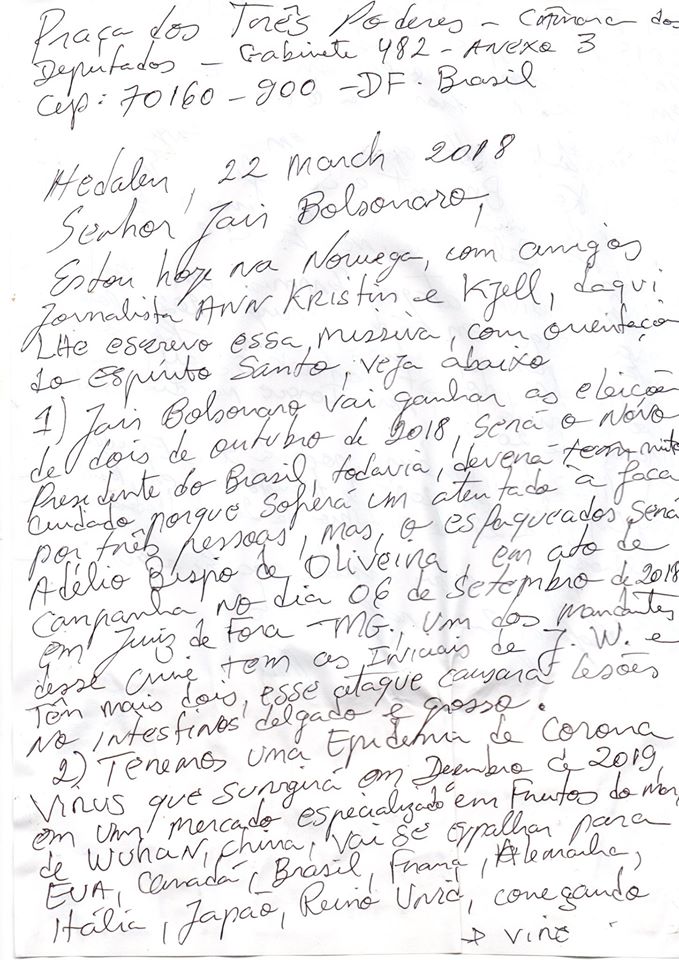 Praça dos Três Poderes - Câmara dos
Deputados - Gabinete 482 - Anexo 3
Cep: 70160-900 - DF. Brasil
Hedalen, 22 March 2018
Senhor Jair Bolsonaro,
Estou hoje na Noruega, com amigos
Jornalista ANN Kristin e Kjell, daqui
LHe escrevo essa missiva, com orientação
do Espírito Santo, veja abaixo
1) Jair Bolsonaro vai ganhar as eleição
de dois de outubro de 2018, Será o Novo
Presidente do Brasil, todavia, deverá tem muito
Cuidado porque Soferá um atentado à faca
por três pessoas, mas, o esfaqueados Será
Adélio Bispo de Oliveira, em ato de
Campanha no dia 06 de Setembro de 2018
em Juiz de Fora - MG. Um dos mandantes
desse crime tem as Iniciais de J. W. e
Têm mais dois, esse ataque causará lesões
no intestinos delgado e grosso.
2) Teremos uma Epidemia de Corona
Vírus que surgirá em Dezembro de 2019,
em um mercado especializado em Frutos do mar,
de WUHAN, China, vai se espalhar para
EUA, Canadá, Brasil, França, Alemanha,
Itália, Japão, Reino Unido, conegando